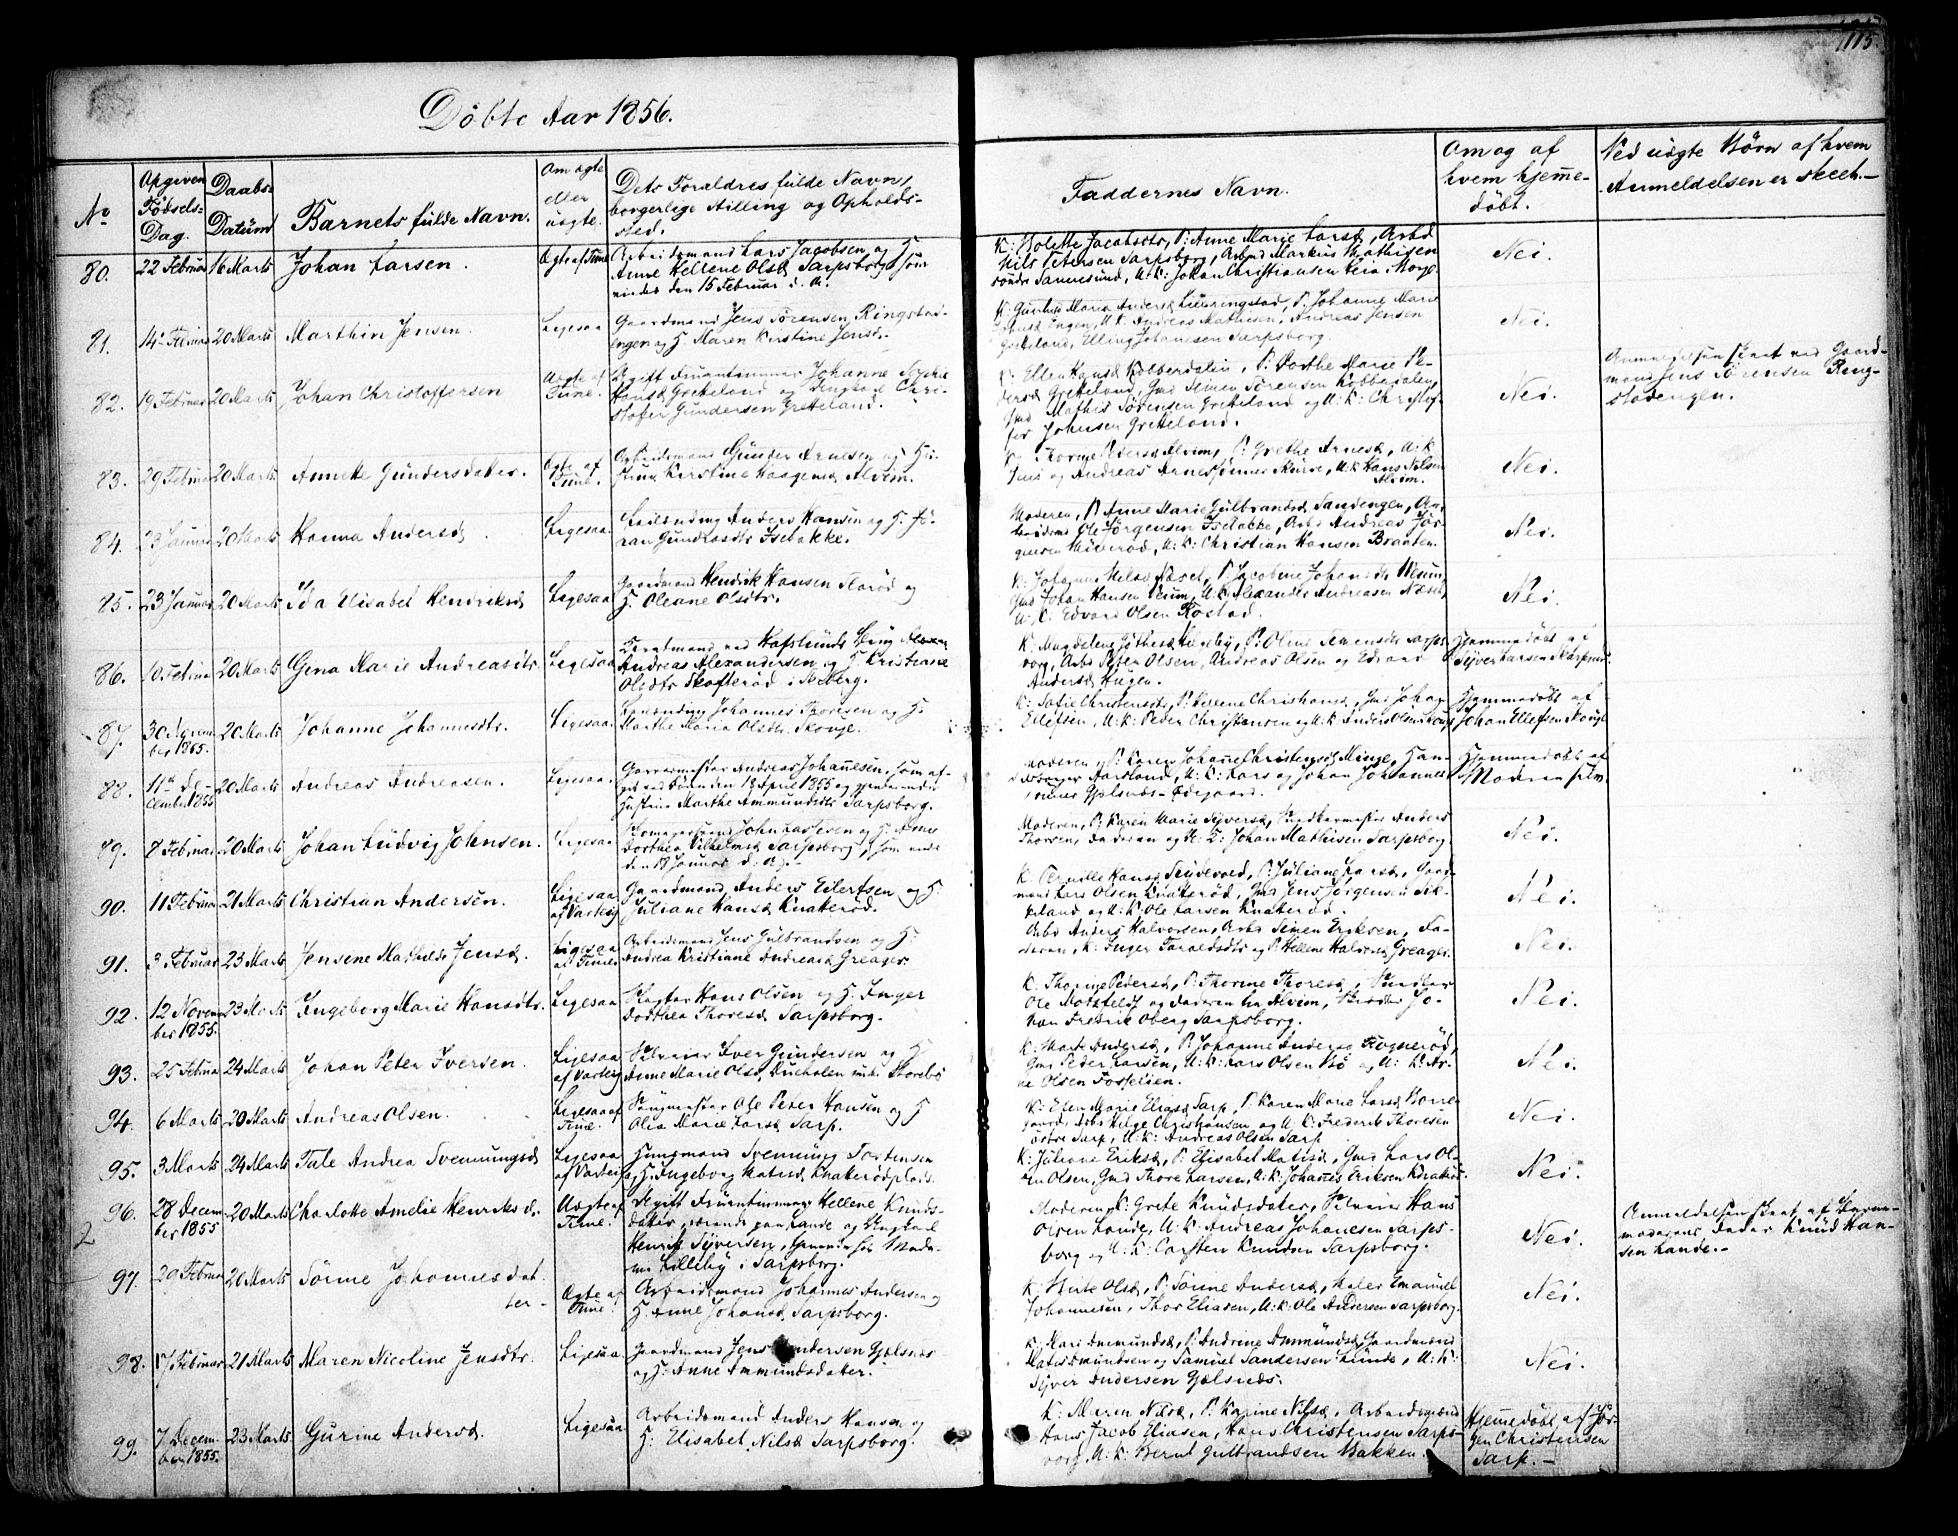 115.
Døbte Aar 1856.
No
Opgiven Fødsels-Dag.
Daabs-Datum
Barnets fulde Navn.
Om ægte eller uægte.
Dets Forældres fulde Navn, borgerlige Stilling og Opholds-sted.
Faddernes Navn.
Om og af hvem hjemme-døbt.
Ved uægte Børn af hvem Anmeldelsen er skeet.
80. 22 Februar 16 Marts Johan Larsen. Ægte af Tune
Arbeidsmand Lars Jacobsen og H.
Anne Hellene Olsd Sarpsborg
den 15 Februar d. A.
K: Bolette Jacobsdtr, P: Anne Marie Larsd, Arbd
Nils Petersen Sarpsborg, Arbmd Markus Mathisen
Sannesund, U: K: Johan Christiansen
Nei.
81. 14 Februar 20 Marts Marthin Jensen. Ligesaa
Gaardmand Jens Sørensen Ringstad-
engen og H. Maren Kirstine Jensd.
Maria Andersd P. Johanne Marie
Engen, U. K. Andreas Mathisen, Andreas Jensen
Grekeland, Elling Johannesen Sarpsborg.
Nei.
82. 19 Februar 20 Marts Johan Christoffersen Uægte af Tune.
Ugift Fruentimmer Johanne Sophie
Hansd Grekeland og Ungkarl Chri-
stofer Gundersen Grekeland.
K. Ellen Hansd Kobberdalen, P: Dorthe Marie Pe-
dersd Grekeland, Gmd Simen Sørensen Kobberdalen,
Gmd Mathis Sørensen Grekeland og U: K: Christof-
fer Johnsen Grekeland.
Nei.
Anmeldelsen skeet ved Gaard-
mand Jens Sørensen Ring-
stadengen.
83. 29 Februar 20 Marts Annette Gundersdater. Ægte af Tune.
Arbeidsmand Gunder Arnesen og H:
Kirstine Haagensd Alvim.
K. Thorine Pedersd Alvim, P. Grethe Arnesd, U: K
Jens og Andreas Arnesønner U: K Hans Nilsen
Alvim.
Nei.
84. 23 Januar 20 Marts Hanna Andersd Ligesaa.
Leilending Anders Hansen og H. Jø-
ran Gundersdtr Isebakke.
Moderen, P. Anne Marie Gulbrandsd Sandengen, Ar-
beidsmd Ole Jørgensen Isebakke, Arbd Andreas Jør-
gensen U: K: Christian Hansen Braaten.
Nei.
85. 23 Januar 20 Marts Ida Elisabet Hendriksd Ligesaa
Gaardmand Hendrik Hansen og
H. Oleane Olsdtr.
K: Johanne Nilsd Næset, P: Jacobine Johansdtr
Gmd Johan Hansen U. K. Alexander Andreasen Næset,
U: K: Edvard Olsen Rostad.
Nei.
86. 10 Februar 20 Marts Gina Marie Andreasdtr. Ligesaa
ved Hafslunds
Andreas Alexandersen og H. Kristiane
Olsdtr Skofterød i Skeberg.
K. Magdalene P: Oline Simensdtr Sarps-
borg, Arbd Peter Olsen, Andreas Olsen og Edvard
Andersd Haugen.
Hjemmedøbt af
Syver Larsen
87. 30 Novem-ber 1855. 20 Marts Johanne Johannesdtr. Ligesaa.
Leilending Johannes Thoresen og H.
Marthe Maria Olsdtr Skouge.
K: Sofie Christensdt, P: Helene Christiansd, Gmd Johan
Ellefsen, U: K: Peder Christiansen og U: K Anders Olsen Skouge
Hjemmedøbt af
Johan Ellefsen Skouge
88. 11te De-cember 1855 20 Marts Andreas Andreasen. Ligesaa.
Garvermester Andreas Johannesen, som af-
gik ved Døden den 19 April 1855 og gjenlevende
Hustrue Marthe Ammundsdtr Sarpsborg.
Moderen og P: Karen Johanne Christensd Minge, Han-
U: K: Lars og Johan Johannes-
Gjølsnæs-Ødegaard.
Hjemmedøbt af
Moderen selv.
89. 8 Februar 20 Marts Johan Ludvig Johnsen. Ligesaa.
John og H. Anne
Dorthea Vilhelmsd Sarpsborg, som
den 18 Januar d: A:-
Moderen, P: Karen Marie Syversd, Snedkermester Anders
Thorsen, Faderen og U: K: Johan Mathisen Sarpsborg.
Nei.
90. 11 Februar 21 Marts Christian Andersen. Ligesaa af Varteig
Gaardmand Anders Eilertsen og H:
Juliane Hansd Knaterød.
K: Pernille Hansd P. Juliane Larsd, Gaard-
mand Lars Olsen Knaterød, Gmd Jens Jørgensen Sik-
keland og U: K: Ole Larsen Knaterød.
Nei.
91. 3 Februar 23 Marts Jensine Mathilde Jensd. Ligesaa af Tune
Arbeidsmand Jens Gulbrandsen og H:
Andrea Kristiane Andreasd Greager.
Arbd Anders Halvorsen, Arbd Simen Eriksen, Fa-
deren, K: Inger Taraldsdtr og P: Hellene Halvorsd Greager.
Nei.
92. 12 Novem-ber 1855. 23 Marts Ingeborg Marie Hansdtr. Ligesaa
Slagter Hans Olsen og H. Inger
Dorthea Thoresd Sarpsborg.
K: Thorine Pedersd, P: Thorine Thoresd, Snedker
Ole Motzfeldt og Faderen fra Alvim, Skrædder Jo-
han Fredrik Oberg Sarpsborg.
Nei.
93. 25 Februar 24 Marts Johan Peter Iversen. Ligesaa af Varteig
Selveier Iver Gundersen og H
Anne Marie Olsd,
K: Marte Andersd, P. Johanne Andersd Rognerød,
Gmd Peder Larsen, U: K: Lars Olsen Bø og U: K: Ar-
ne Olsen
Nei.
94. 6 Marts 20 Marts Andreas Olsen. Ligesaa af Tune.
Sagmester Ole Peter Hansen og H
Olia Marie Larsd Sarp.
K: Elen Marie Eliasd Sarp, P. Karen Marie Larsd Borre-
gaard, Arbd Helge Christiansen og U. K: Frederik Thoresen
østre Sarp, U: K: Andreas Olsen Sarp
Nei.
95. 3 Marts 24 Marts Tale Andrea Svenningsd Ligesaa af Varteig
Huusmand Svenning Torstensen
og H. Ingeborg Matisd Knaterødplads.
K: Juliane Eriksd, P: Elisabet Matisd, Gmd Lars Ol-
sen Olsen, Gmd Thore Larsen, U: K: Johannes Eriksen Knaterød
Nei.
96. 28 Decem-ber 1855 20 Marts Charlotte Amelie Henriksd. Uægte af Tune.
2
Ugift Fruentimmer Hellene Knuds-
dater, værende paa Lande og Ungkarl
Henrik Syversen, tjenende hos Mada-
me Lilleby i Sarpsborg.
Moderen, K: Grete Knudsdater, Selveier Hans
Olsen Lande, U: K: Andreas Johanesen Sarps-
borg og U: K: Carsten Knudsen Sarpsborg.
Nei.
Anmeldelsen skeet af Barne-
moderens Fader Knud Han-
sen Lande.-
97. 29 Februar 20 Marts Sørine Johannesdat-ter- Ægte af Tune.
Arbeidsmand Johannes Andersen og
H: Anne Johansd Sarpsborg.
K: Berte Olsd, P: Sørine Andersd, Maler Emanuel
Johannesen, Thor Eliasen, U: K: Ole Andersen Sarpsborg.
Nei.
98. 17 Februar 21 Marts Maren Nicoline Jensdtr. Ligesaa
Gaardmand Jens Andersen Gjølsnæs
og H: Anne Ammundsdater.
K: Mari Ammundsd, P: Andrine Ammundsd, Gaardmænd
Mates Amundsen og Samuel Sandersen Lunde, U: K:
Syver Andersen Gjølsnæs.
Nei.
99. 7 Decem-ber 1855. 23 Marts Gurine Andersd. Ligesaa
Arbeidsmand Anders Hansen og
H: Elisabet Nilsd Sarpsborg.
K: Maren Nilsd, P. Karine Nilsd, Arbeidsmænd
Hans Jacob Eliasen, Hans Christensen Sarps-
borg, U: K: Bernt Gulbrandsen Bakken.
Hjemmedøbt af Jør-
gen Christensen
Sarp.-